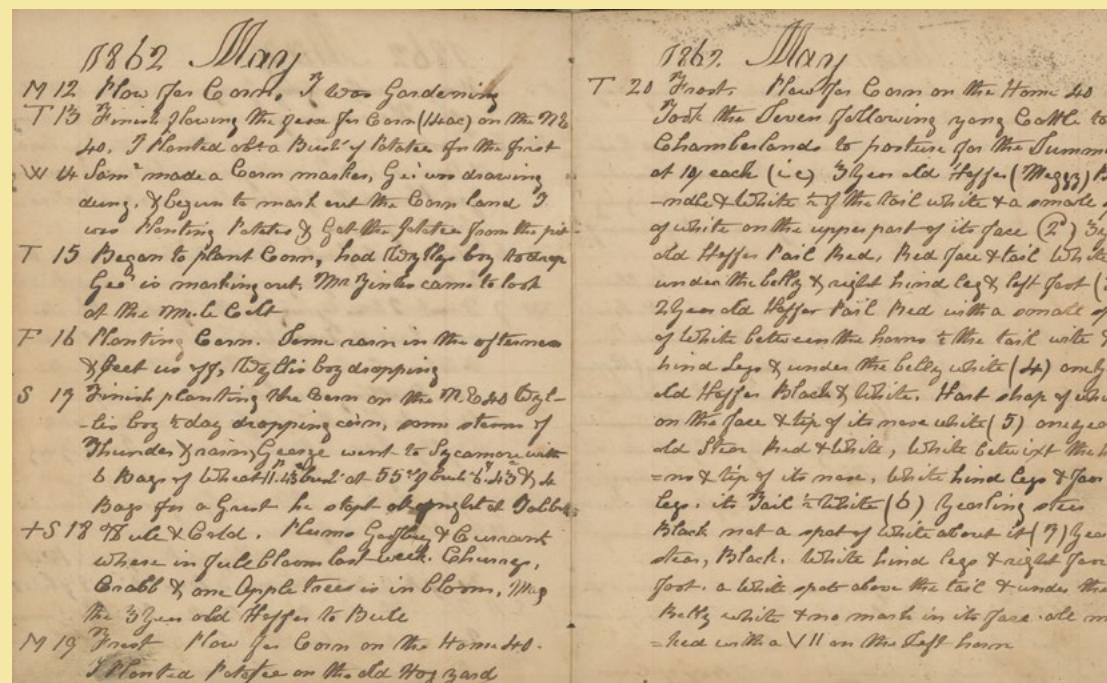 1862 May
M 12 Plow for Corn, I was Gardening
T 13 Finish plowing the peace for Corn (14 ac) on the N E
40. I Planted abt a Bush of Potatoe for the first
W 14 Saml made a Corn marker, Geo drawing
dung, & begun to mark out the Corn land I
was Planting Potatoes & Got the Potatoe from the pit
T 15 Began to plant Corn, had Wyllys boy to drop
Geo is marking out. Mr came to look
at the Mule Colt
F 16 Planting Corn. Some rain in the afternoon
& us off, Wyllis boy dropping
S 17 Finish planting the Corn on the N E 40 Wyl-
-lis boy ½ day dropping corn, some storm of
Thunder & rain, George went to Sycamore with
6 Bags of Wheat at 55 & 4
Bags for a Grist he stopt at night at
+ S 18 & Cold. Plums & Currant
where in full bloom last week. Cherrey,
Crabb & one Apple trees is in bloom,
the 3 year old Heffer to Bull
M 19 Frost Plow for Corn on the Home 40.
I Planted Potatoe on the old Hog yard
1862. May
T 20 Frost. Plow for Corn on the Home 40
Took the Seven following yong Cattle to
Chamberlands to posture for the Summe
at 10/ each (ie) 3 year old Heffer (Meggy) B
-ndle & White ½ of the tail white & a small
of white on the upper part of its face (2) 3 y
old Heffer Pail Red, Red face & tail White
under the belly & right hind leg & left foot (
2 year old Heffer Pail Red with a small
of White between the horns ½ the tail wite &
hind Legs & under the belly white (4) one y
old Heffer Black & White. Hart shape of whi
on the face & tip of its nose white (5) one yea
old Stear Red & White, White betwixt the h
=ns & tip of its nose, white hind legs & fore
legs. its Tail ½ White (6) Yearling steer
Black not a spot of white about it (7) Year
stear, Black. White hind legs & right fore
foot. a white spot above the tail & under the
Belly white & no mark in its face all m
=ked with a V11 on the Left horn